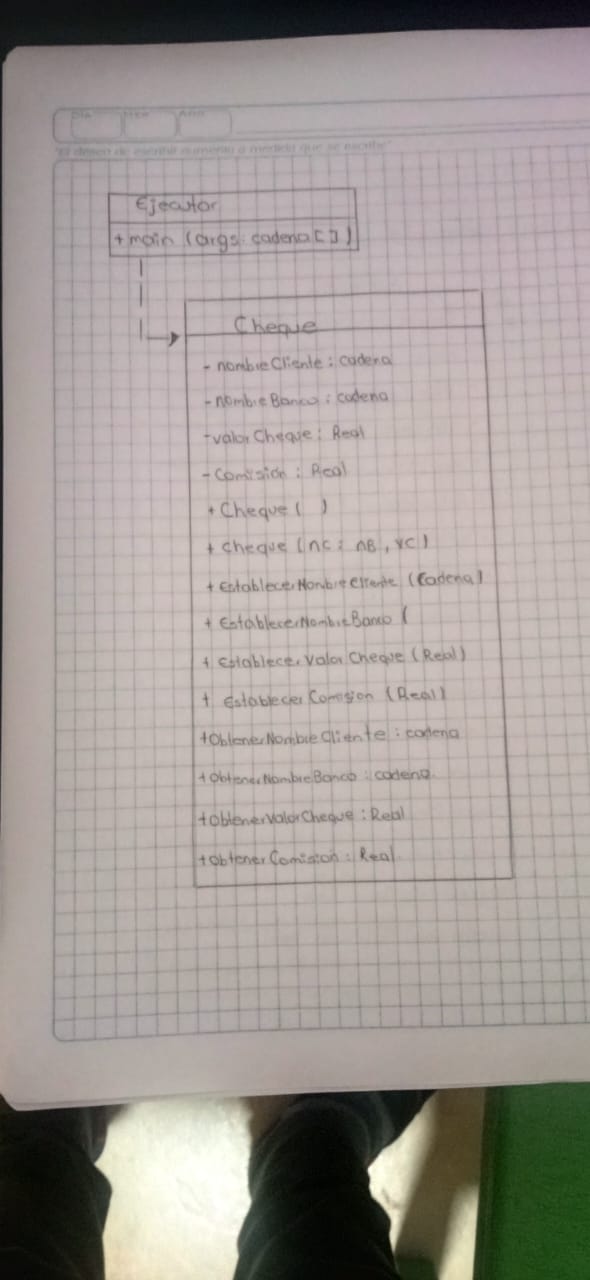 Día Mes Año
"El deseo de escribir aumenta a medida que se escribe"
Ejecutor
+ main (args: cadena [])
Cheque
- nombreCliente : cadena
- nombreBanco : cadena
- valorCheque : Real
- Comisión : Real
+ Cheque ( )
+ cheque (nc : nB, vc)
+ EstablecerNombreCliente (Cadena)
+ EstablecerNombreBanco (
+ Establecer Valor Cheque (Real)
+ Establecer Comision (Real)
+ObtenerNombreCliente : cadena
+ObtenerNombreBanco : cadena
+obtenerValorCheque : Real
+obtener Comision : Real